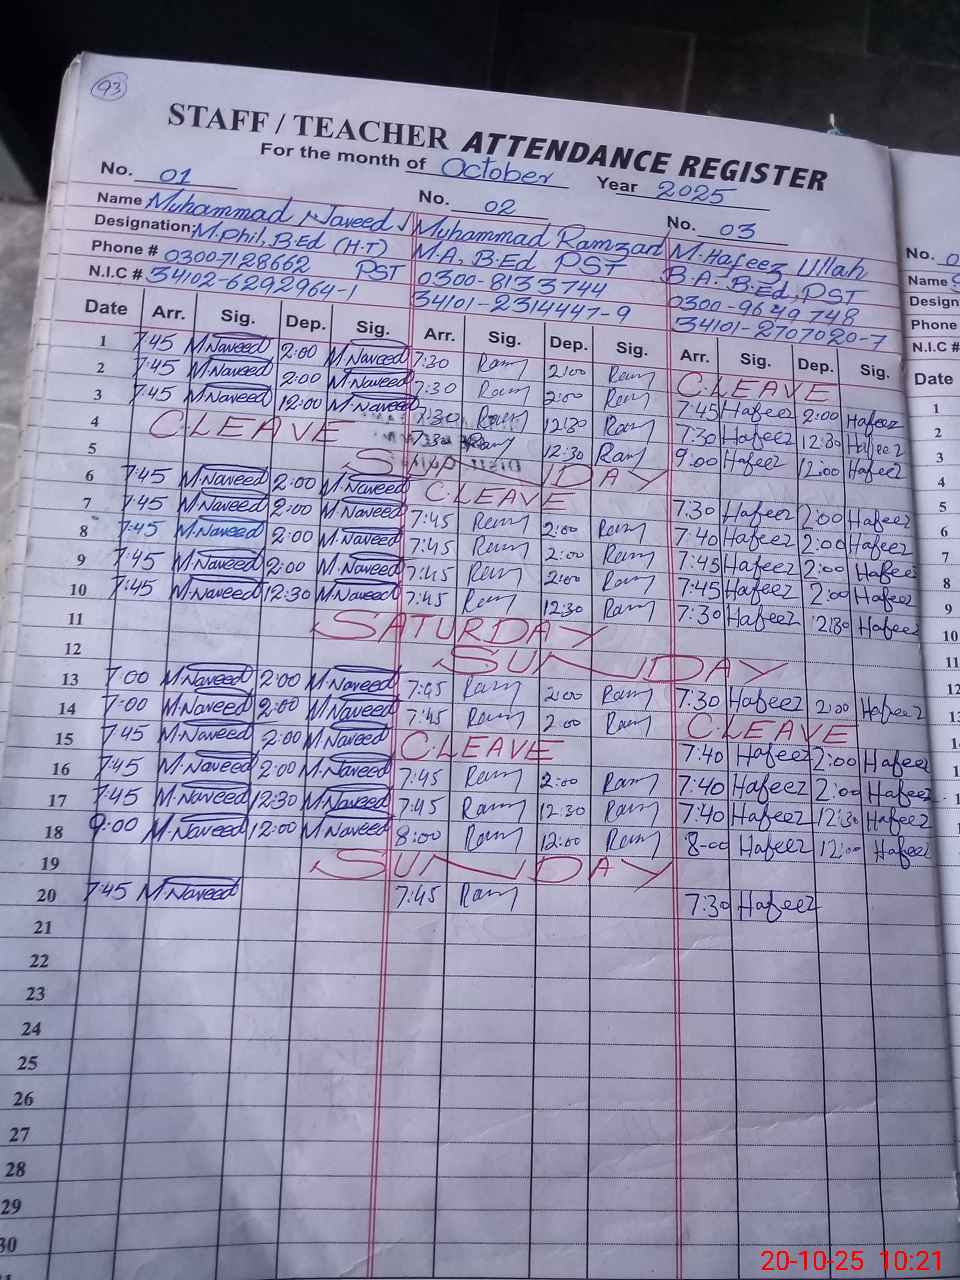 93
STAFF / TEACHER ATTENDANCE REGISTER
For the month of October Year 2025
No. 01 No. 02 No. 03
Name Muhammad Naveed Muhammad Ramzan M. Hafeez Ullah
Designation: M.Phil, B.Ed (H.T) PST M.A. B.Ed PST B.A. B.Ed, PST
Phone # 0300-7128662 0300-8133744 0300-9649748
N.I.C # 34102-6292964-1 34101-2314447-9 34101-2707020-7
Date Arr. Sig. Dep. Sig. Arr. Sig. Dep. Sig. Arr. Sig. Dep. Sig.
1 7:45 M.Naveed 2:00 M.Naveed 7:30 Ram 2:00 Ram C.LEAVE
2 7:45 M.Naveed 2:00 M.Naveed 7:30 Ram 2:00 Ram 7:45 Hafeez 2:00 Hafeez
3 7:45 M.Naveed 12:00 M.Naveed 7:30 Ram 12:30 Ram 7:30 Hafeez 12:30 Hafeez
4 C.LEAVE 7:30 Ram 12:30 Ram 9:00 Hafeez 12:00 Hafeez
5 SUNDAY
6 7:45 M.Naveed 2:00 M.Naveed C.LEAVE 7:30 Hafeez 2:00 Hafeez
7 7:45 M.Naveed 2:00 M.Naveed 7:45 Ram 2:00 Ram 7:40 Hafeez 2:00 Hafeez
8 7:45 M.Naveed 2:00 M.Naveed 7:45 Ram 2:00 Ram 7:45 Hafeez 2:00 Hafeez
9 7:45 M.Naveed 2:00 M.Naveed 7:45 Ram 2:00 Ram 7:45 Hafeez 2:00 Hafeez
10 7:45 M.Naveed 12:30 M.Naveed 7:45 Ram 12:30 Ram 7:30 Hafeez 12:30 Hafeez
11 SATURDAY
12 SUNDAY
13 7:00 M.Naveed 2:00 M.Naveed 7:45 Ram 2:00 Ram 7:30 Hafeez 2:00 Hafeez
14 7:00 M.Naveed 2:00 M.Naveed 7:45 Ram 2:00 Ram C.LEAVE
15 7:45 M.Naveed 2:00 M.Naveed C.LEAVE 7:40 Hafeez 2:00 Hafeez
16 7:45 M.Naveed 2:00 M.Naveed 7:45 Ram 2:00 Ram 7:40 Hafeez 2:00 Hafeez
17 7:45 M.Naveed 12:30 M.Naveed 7:45 Ram 12:30 Ram 7:40 Hafeez 12:30 Hafeez
18 9:00 M.Naveed 12:00 M.Naveed 8:00 Ram 12:00 Ram 8-00 Hafeez 12:00 Hafeez
19 SUNDAY
20 7:45 M.Naveed 7:45 Ram 7:30 Hafeez
21
22
23
24
25
26
27
28
29
30
No. 0
Name
Design
Phone #
N.I.C #
Date
1
2
3
4
5
6
7
8
9
10
11
12
20-10-25 10:21